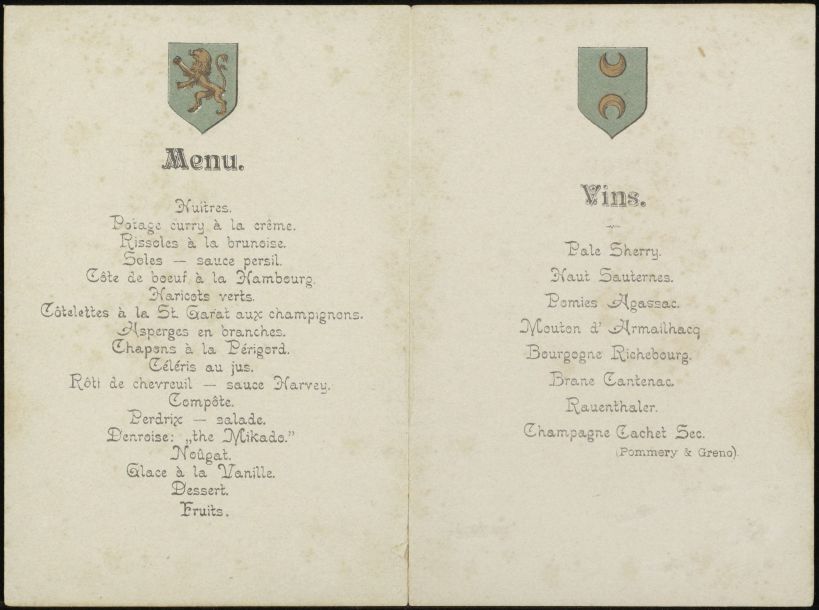 Menu.
Huîtres.
Potage curry à la crême.
Rissoles à la brunoise.
Soles — sauce persil.
Côte de boeuf à la Hambourg.
Haricots verts.
Côtelettes à la St. Garat aux champignons.
Asperges en branches.
Chapons à la Périgord.
Céléris au jus.
Rôti de chevreuil — sauce Harvey.
Compôte.
Perdrix — salade.
Denroise: „the Mikado."
Noûgat.
Glace à la Vanille.
Dessert.
Fruits.
Vins.
Pale Sherry.
Haut Sauternes.
Pomies Agassac.
Mouton d' Armailhacq
Bourgogne Richebourg.
Brane Cantenac.
Rauenthaler.
Champagne Cachet Sec.
(Pommery & Greno).